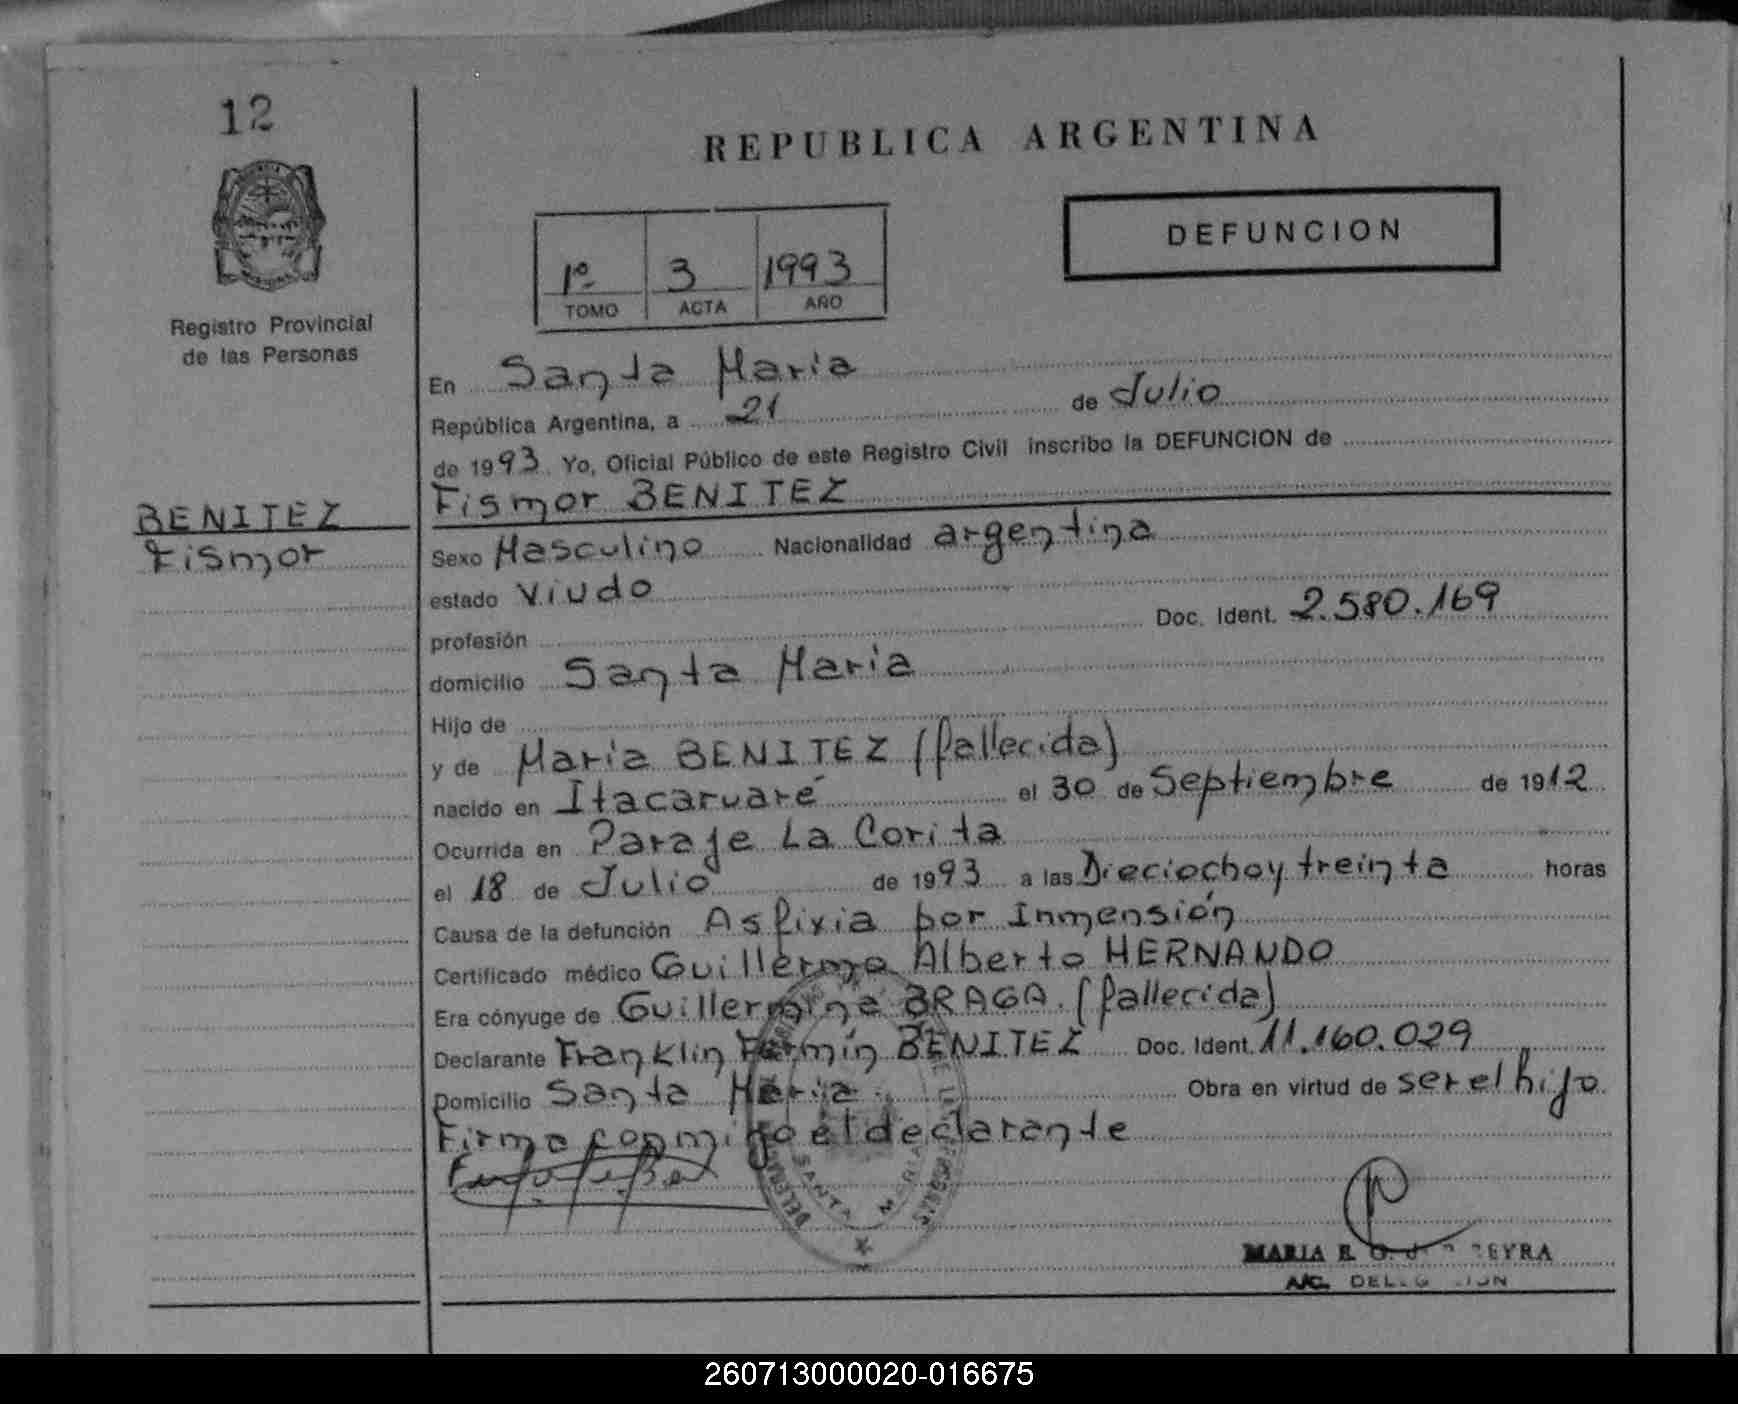 12
REPUBLICA ARGENTINA
DEFUNCION
1º 3 1993
TOMO ACTA AÑO
Registro Provincial
de las Personas
En Santa Maria
República Argentina, a 21 de Julio
de 1993 Yo, Oficial Público de este Registro Civil inscribo la DEFUNCION de
Fismor BENITEZ
BENITEZ
Fismor
Sexo Masculino Nacionalidad argentina
estado Viudo
profesión Doc. Ident. 2.580.169
domicilio Santa Maria
Hijo de
y de Maria BENITEZ (fallecida)
nacido en Itacaruaré el 30 de Septiembre de 1912
Ocurrida en Paraje La Corita
el 18 de Julio de 1993 a las Dieciocho y treinta horas
Causa de la defunción Asfixia por Inmensión
Certificado médico Guillermo Alberto HERNANDO
Era cónyuge de Guillermina BRAGA (fallecida)
Declarante Franklin Fermín BENITEZ Doc. Ident. 11.160.029
Domicilio Santa Maria Obra en virtud de ser el hijo
Firma conmigo el declarante
SANTA MARIA
MARIA E. EYRA
A/C.
260713000020-016675